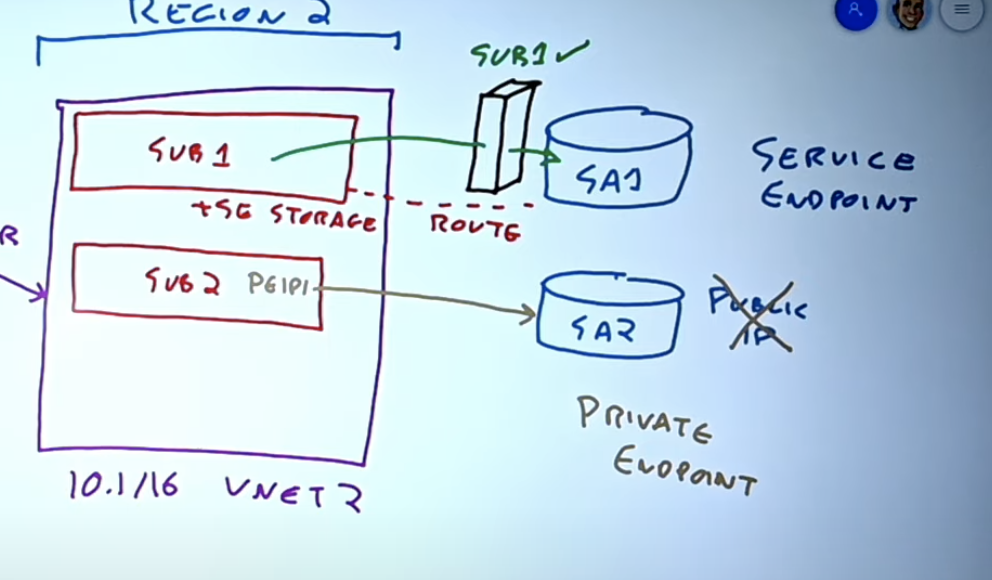 REGION 2
SUB1 ✓
SUB 1
SA1
SERVICE
ENDPOINT
+SE STORAGE
ROUTE
R
SUB 2 PEIP1
SA2
PUBLIC
IP
PRIVATE
ENDPOINT
10.1/16 VNET 2